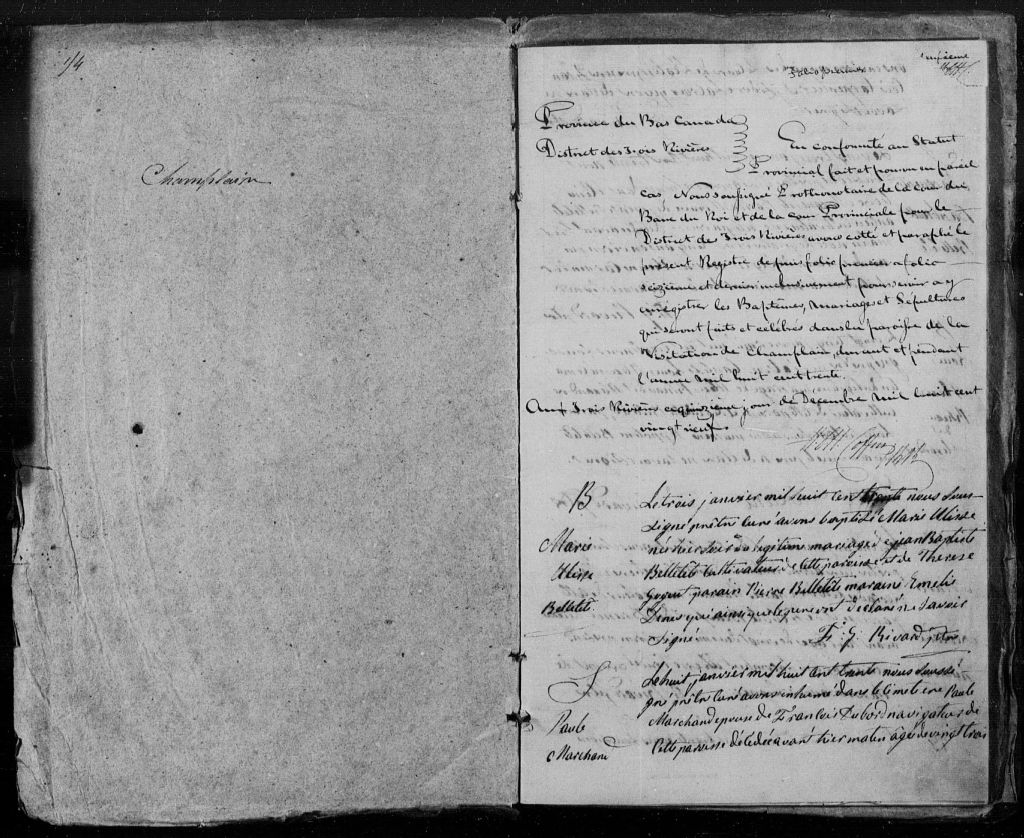 1/4
Champlain
Folio premier
Province du Bas Canada
District des Trois Rivières
En conformité au Statut
Provincial fait et pourvu en pareil
cas Nous soussigné Prothonotaire de la cour du
Banc du Roi et de la cour Provinciale pour le
District des Trois Rivières avons cotté et paraphé le
présent Registre depuis folio premier a folio
seizieme et dernier inclusivement pour servir a y
enregistrer les Baptêmes, mariages et Sépultures
qui seront faits et célébrés dans la paroisse de la
Visitation de Champlain, durant et pendant
l'année mil huit cent trente.
Aux Trois Rivières ce quinzieme jour de Decembre Mil huit cent
vingt neuf.
Coffin
B
Marie
Ulisse
Belletet
Le trois janvier mil huit cent trente nous sous-
signé prêtre curé avons baptisé Marie Ulisse
née hier soir du légitime mariage de jean Baptiste
Belletete cultivateur de cette paroisse et de Therese
parain Pierre Belletete maraine Emelie
qui ainsi que le pere ont déclaré ne savoir
signé F: G. Rivard ptre
S
Paule
Marchand
Le huit janvier mil huit cent trente nous soussi-
gné prêtre curé avons inhumé dans le cimetiere Paule
Marchand epouse de François Dubord navigateur de
cette paroisse décédée avant hier matin âgée de vingt trois